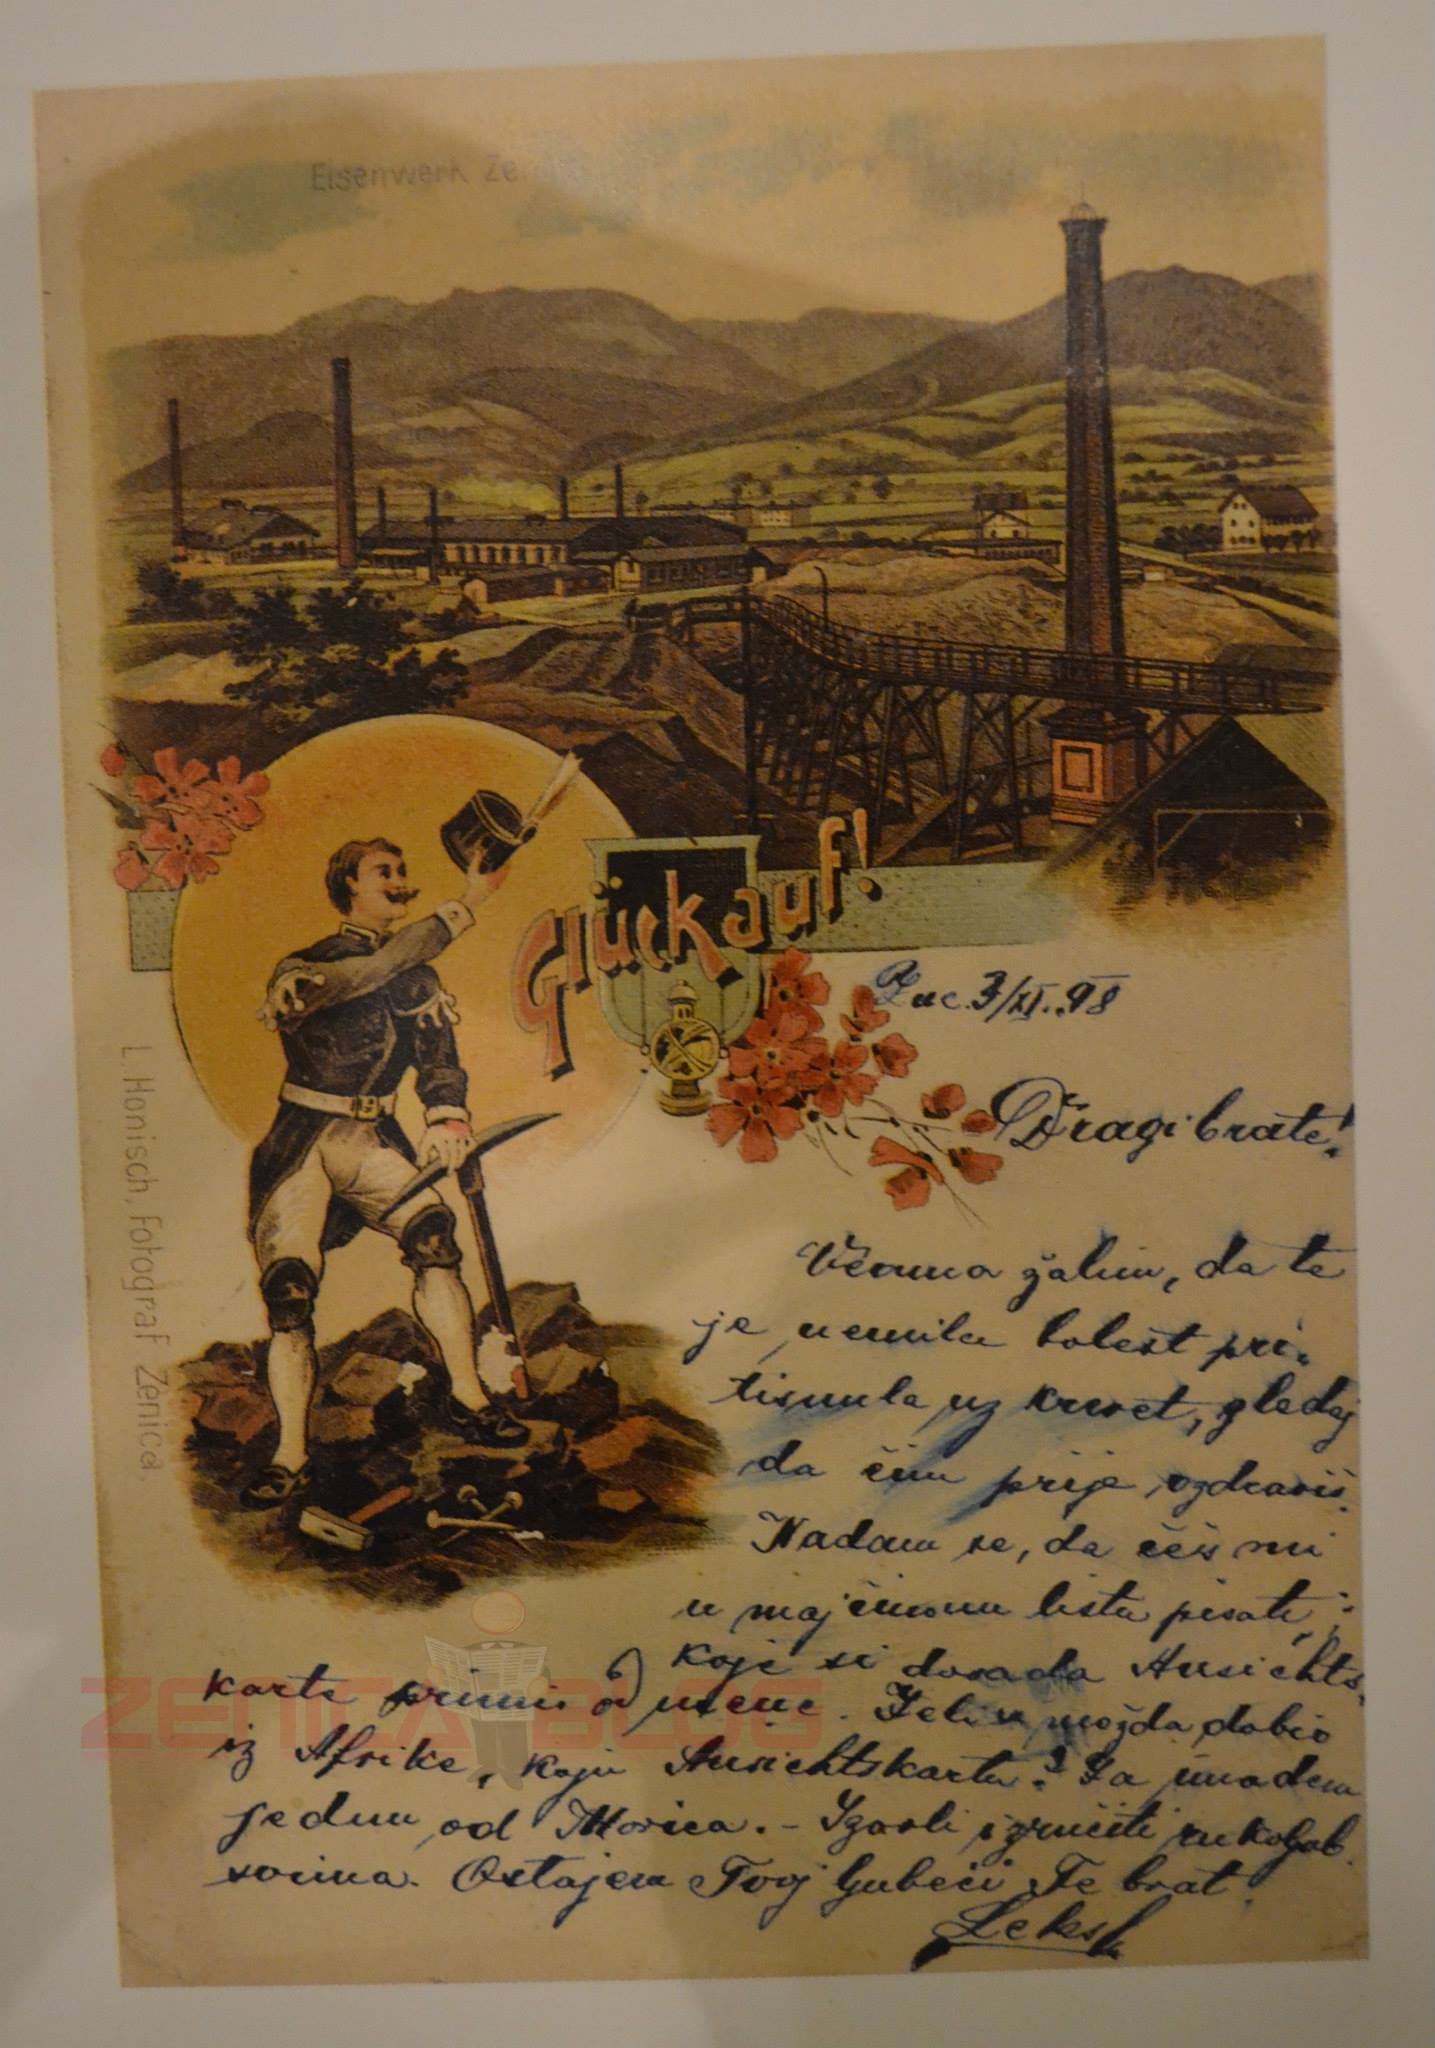 Eisenwerk Zenica
Glückauf!
Zec. 3/XI. 98
Dragi brate!
Veoma žalim, da te
je nemila bolest pri-
tisnula uz krevet, gledaj
da čim prije ozdraviš.
Nadam se, da ćeš mi
u najčimomu listu pisati,
koje si dosada Ansichts-
karte primio od mene. Jeli si možda dobio
iz Afrike, koju Ansichtskartu? Ja imadem
jednu od Morica. - Izvoli izručiti rukoljub
svima. Ostajem Tvoj ljubeći Te brat
Leksa
L. Honisch, Fotograf Zenica.
ZENICA BLOG